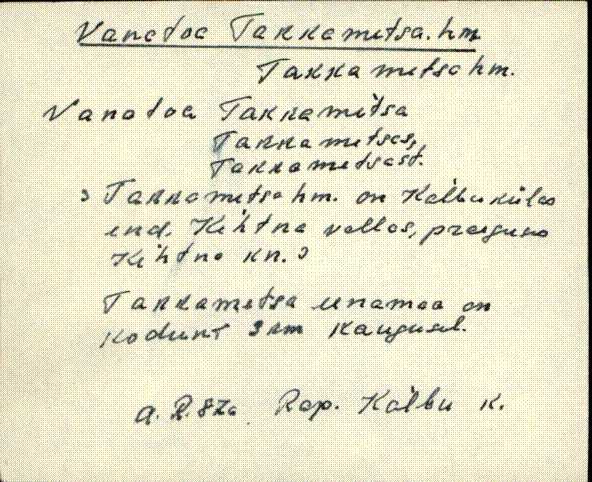 Vanatoa Takkametsa hm.
Takkametsa hm.
Vanatoa Takkametsa
Takkametsas,
Takkametsast.
Takkametsa hm. on Kälbu külas
end. Kehtna vallas, praeguses
Kehtna kn.
Takkametsa heinamaa on
kodunt 3 km kaugusel.
Rap. Kälbu k.